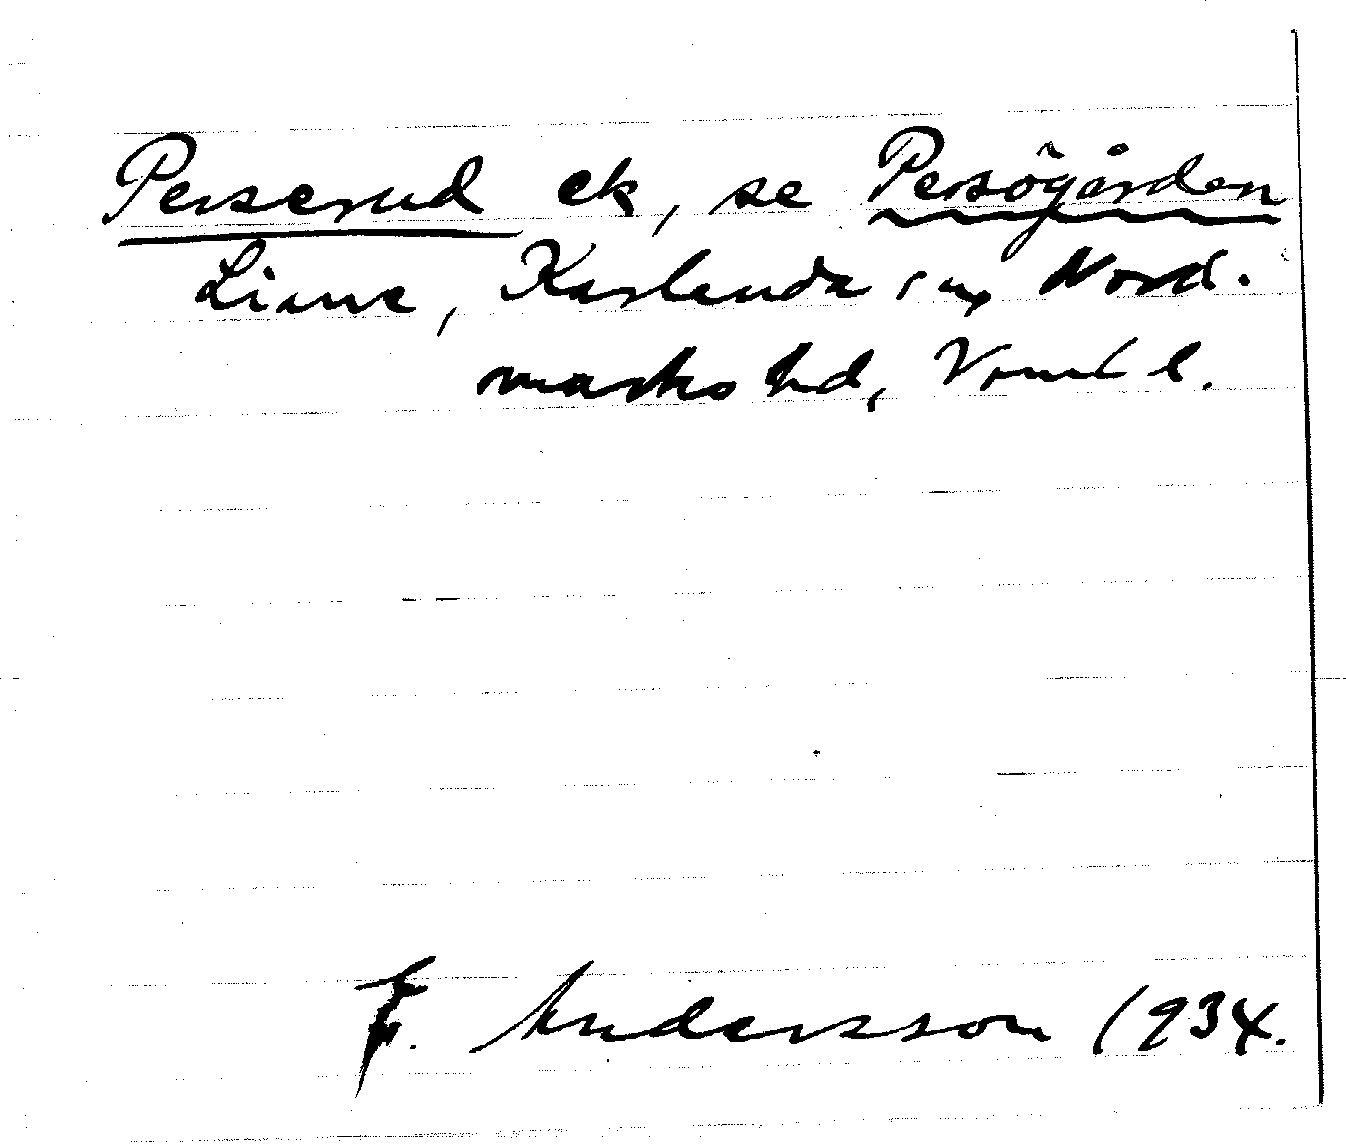 Perserud ek, se Persögården
Linne, Karlanda sn, Nord-
marks hd, Värml l.
F. Andersson 1934.